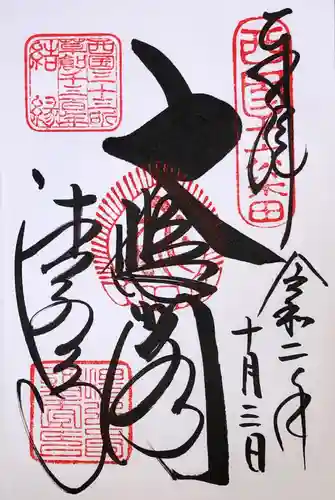 奉拝
令和二年
十月二日
大悲閣
清水寺
西国三十三所
草創千三百年
結縁